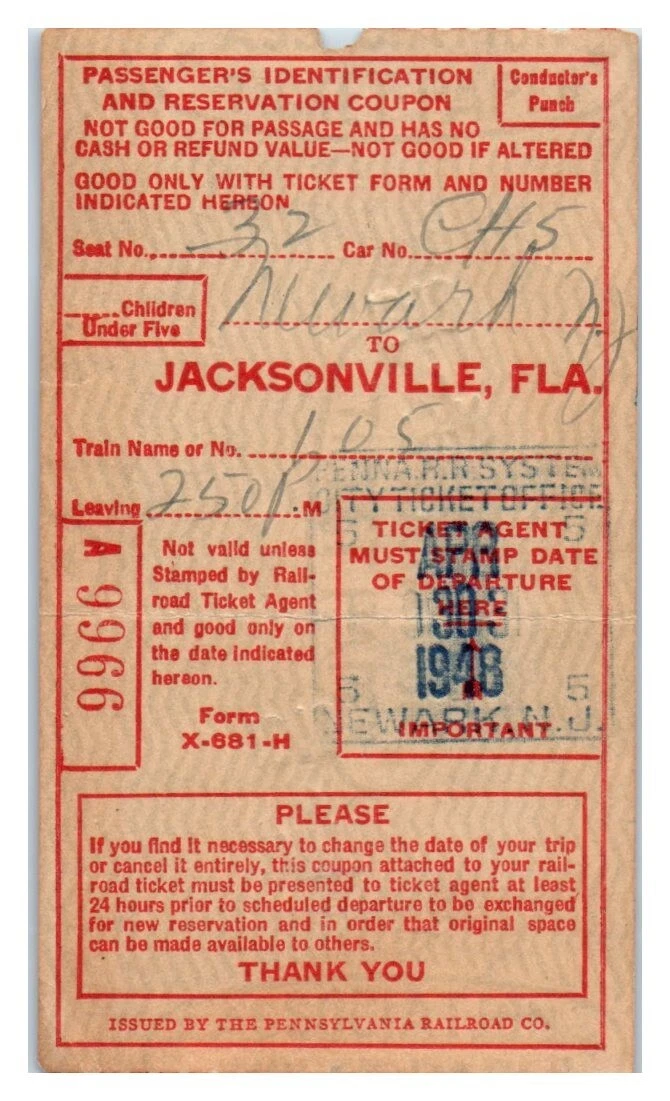 PASSENGER'S IDENTIFICATION
AND RESERVATION COUPON
Conductor's
Punch
NOT GOOD FOR PASSAGE AND HAS NO
CASH OR REFUND VALUE—NOT GOOD IF ALTERED
GOOD ONLY WITH TICKET FORM AND NUMBER
INDICATED HEREON
Seat No. 32 Car No. CH5
Children
Under Five
Newark NJ
TO
JACKSONVILLE, FLA.
Train Name or No. 105
Leaving 250P M
PENNA. R.R. SYSTEM
CITY TICKET OFFICE
5 5
APR
30
1948
5 5
NEWARK, N.J.
TICKET AGENT
MUST STAMP DATE
OF DEPARTURE
HERE
IMPORTANT
A 9966
Not valid unless
Stamped by Rail-
road Ticket Agent
and good only on
the date indicated
hereon.
Form
X-681-H
PLEASE
If you find it necessary to change the date of your trip
or cancel it entirely, this coupon attached to your rail-
road ticket must be presented to ticket agent at least
24 hours prior to scheduled departure to be exchanged
for new reservation and in order that original space
can be made available to others.
THANK YOU
ISSUED BY THE PENNSYLVANIA RAILROAD CO.